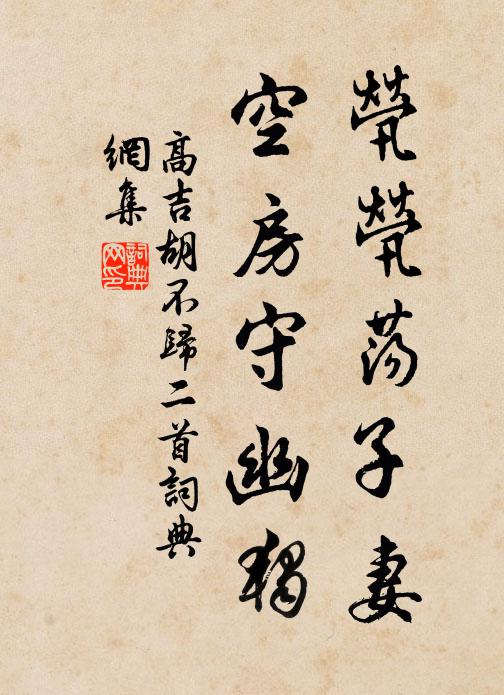 煢煢蕩子妻
空房守幽獨
高吉胡不歸二首詞典
網集
詞典
网印